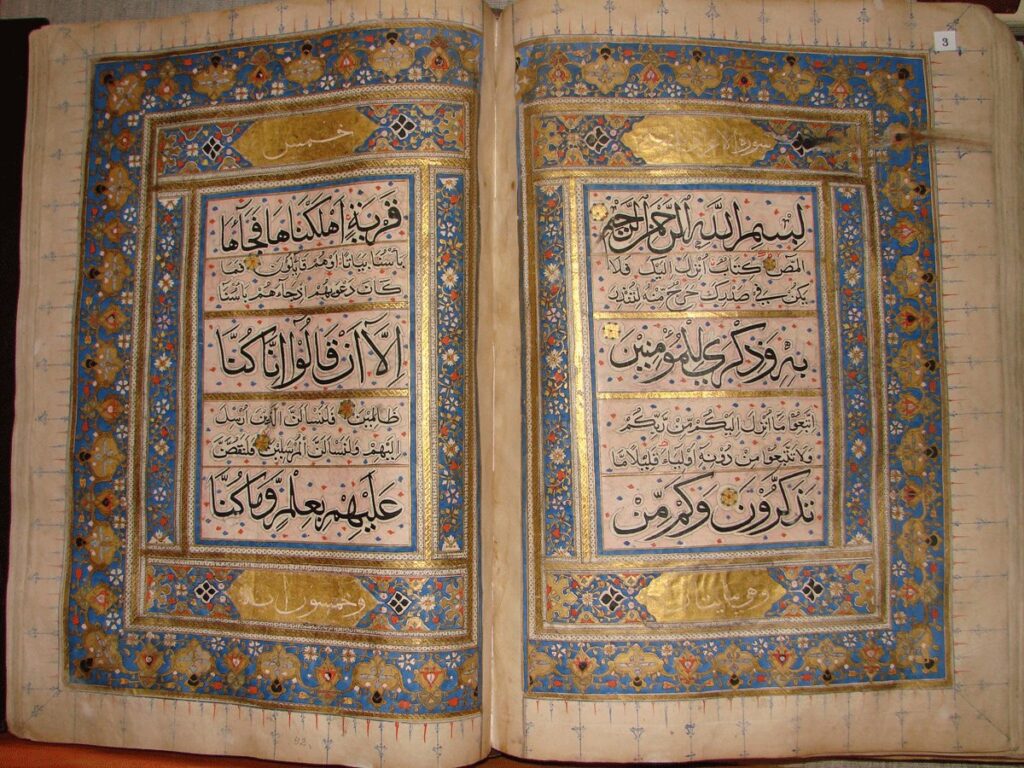 3
سورة الاعراف
بِسْمِ اللَّهِ الرَّحْمٰنِ الرَّحِيمِ
المص كِتَابٌ اُنْزِلَ اِلَيْكَ فَلَا
يَكُنْ فِي صَدْرِكَ حَرَجٌ مِنْهُ لِتُنْذِرَ
بِهِ وَذِكْرٰي لِلْمُؤْمِنِينَ
اِتَّبِعُوا مَا اُنْزِلَ اِلَيْكُمْ مِنْ رَبِّكُمْ
وَلَا تَتَّبِعُوا مِنْ دُونِهِ اَوْلِيَاءَ قَلِيلًا مَّا
تَذَكَّرُونَ وَكَمْ مِّنْ
وهي مايتان
خمس
قَرْيَةٍ اَهْلَكْنَاهَا فَجَآءَهَا
بَاْسُنَا بَيَاتًا اَوْهُمْ قَايِلُونَ فَمَا
كَانَ دَعْوٰيهُمْ اِذْ جَاءَهُمْ بَاْسُنَا
اِلَّآ اَنْ قَالُوا اِنَّا كُنَّا
ظَالِمِينَ فَلَنَسْاَلَنَّ الَّذِينَ اُرْسِلَ
اِلَيْهِمْ وَلَنَسْاَلَنَّ الْمُرْسَلِينَ فَلَنَقُصَّنَّ
عَلَيْهِمْ بِعِلْمٍ وَمَا كُنَّا
وخمسون آية